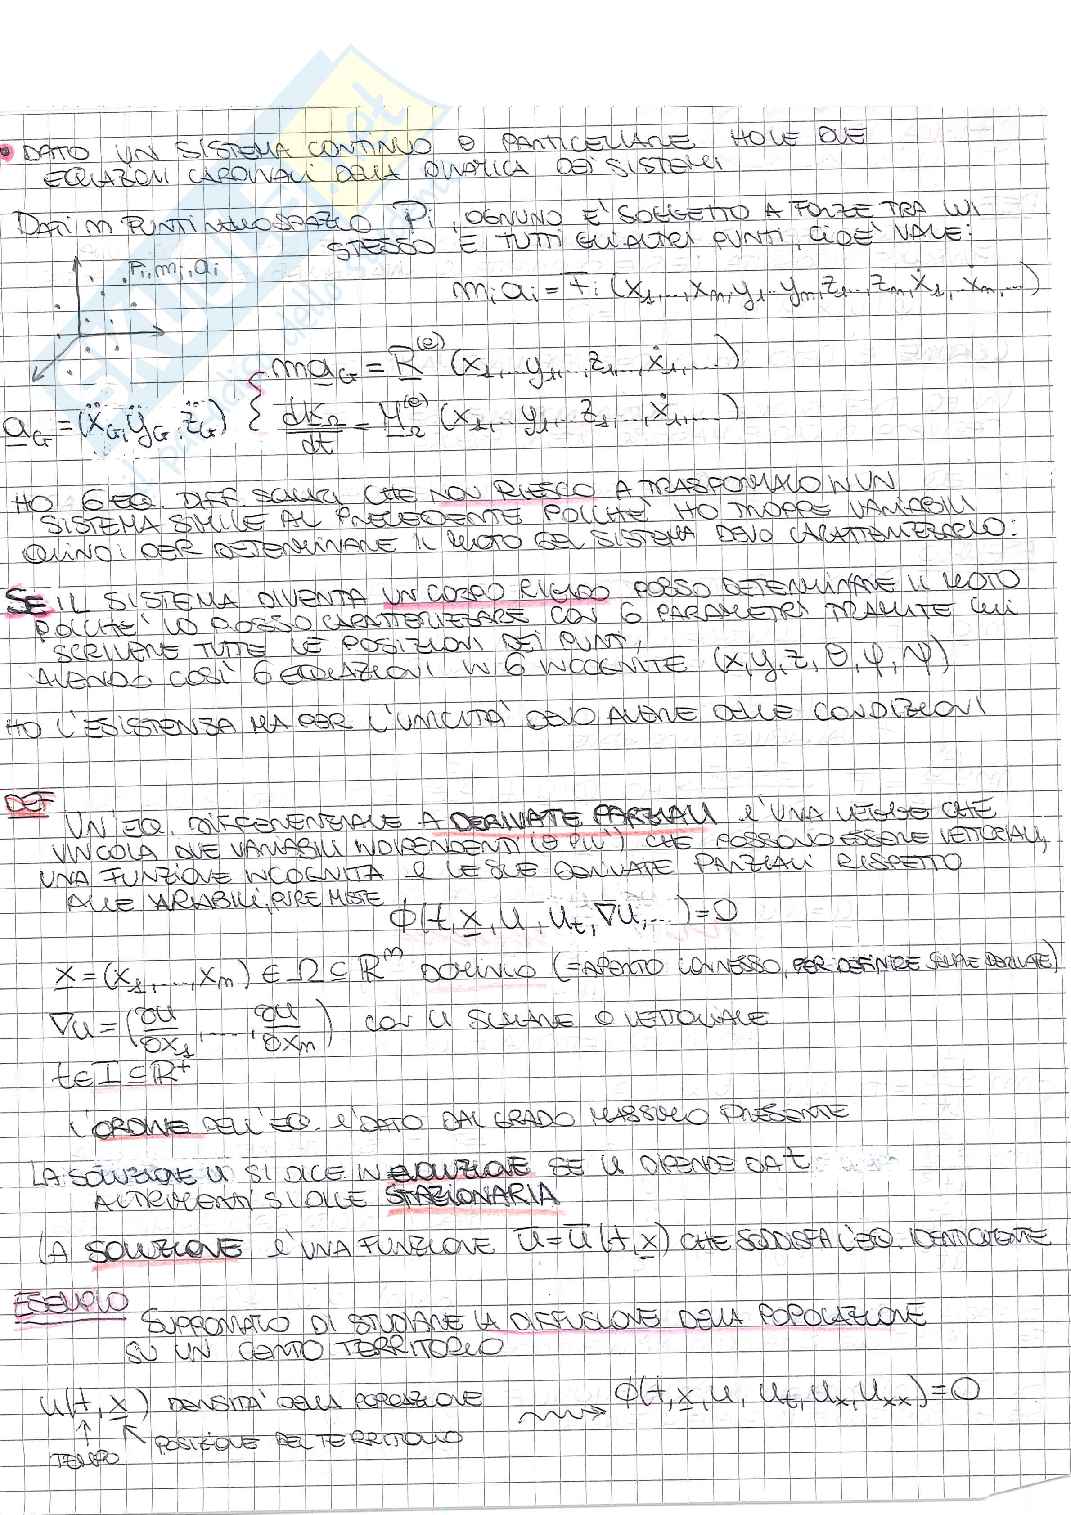 • DATO UN SISTEMA CONTINUO O PARTICELLARE HO LE DUE
EQUAZIONI CARDINALI DELLA DINAMICA DEI SISTEMI
DATI n PUNTI NELLO SPAZIO Pi, OGNUNO E' SOGGETTO A FORZE TRA LUI
STESSO E TUTTI GLI ALTRI PUNTI, CIOE' VALE:
Pi, mi, ai
mi ai = Fi (x1,..., xn, y1... yn, z1..., zn, ẋ1,... ẋn,...)
m a_G = R^(e) (x1,... y1,..., z1,..., ẋ1,...)
a_G = (ẍ_G, ÿ_G, z̈_G) { dK_Ω/dt = M_Ω^(e) (x1,... y1,... z1,..., ẋ1,...)
HO 6 EQ. DIFF. SCALARI CHE NON RIESCO A TRASFORMALO IN UN
SISTEMA SIMILE AL PRECEDENTE POICHE' HO TROPPE VARIABILI
QUINDI PER DETERMINARE IL MOTO DEL SISTEMA DEVO CARATTERIZZARLO:
SE IL SISTEMA DIVENTA UN CORPO RIGIDO POSSO DETERMINARE IL MOTO
POICHE' LO POSSO CARATTERIZZARE CON 6 PARAMETRI TRAMITE CUI
SCRIVERE TUTTE LE POSIZIONI DEI PUNTI,
AVENDO COSÌ 6 EQUAZIONI IN 6 INCOGNITE (x, y, z, θ, φ, ψ)
HO L'ESISTENZA MA PER L'UNICITA' DEVO AVERE DELLE CONDIZIONI
DEF
UN'EQ. DIFFERENZIALE A DERIVATE PARZIALI E' UNA LEGGE CHE
VINCOLA DUE VARIABILI INDIPENDENTI (O PIU') CHE POSSONO ESSERE VETTORIALI,
UNA FUNZIONE INCOGNITA E LE SUE DERIVATE PARZIALI RISPETTO
ALLE VARIABILI, PURE MISTE
ϕ(t, x, u, u_t, ∇u, ...) = 0
x = (x1, ..., xn) ∈ Ω ⊆ ℝ^n DOMINIO (= APERTO CONNESSO, PER DEFINIRE SEMPRE DERIVATE)
∇u = (∂u/∂x1, ..., ∂u/∂xn) CON U SCALARE O VETTORIALE
t ∈ I ⊆ ℝ^+
L'ORDINE DELL'EQ. E' DATO DAL GRADO MASSIMO PRESENTE
LA SOLUZIONE U SI DICE IN EVOLUZIONE SE U DIPENDE DA t
ALTRIMENTI SI DICE STAZIONARIA
LA SOLUZIONE E' UNA FUNZIONE ū = ū(t, x) CHE SODDISFA L'EQ. IDENTICAMENTE
ESEMPIO
SUPPONIAMO DI STUDIARE LA DIFFUSIONE DELLA POPOLAZIONE
SU UN CERTO TERRITORIO
u(t, x) DENSITA' DELLA POPOLAZIONE ⇝ ϕ(t, x, u, u_t, u_x, u_xx) = 0
POSIZIONE DEL TERRITORIO
TEMPO